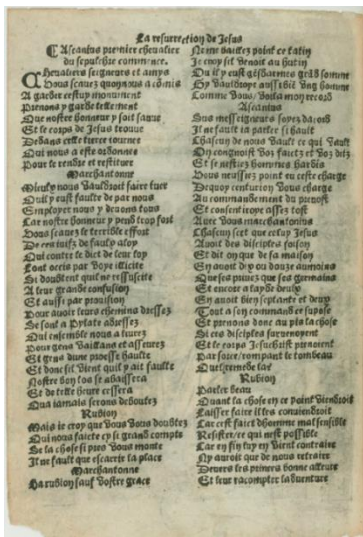 La resurrection de Jesus
Ascanius premier chevalier
du sepulchre commence.
Chevaliers seigneurs et amys
Vous scauez quon nous a cõmis
A garder cestuy monument
Prenons y garde tellement
Que nostre honneur y soit sauue
Et le corps de Jesus trouue
Dedans ceste tierce iournee
Qui nous a este ordonnee
Pour le rendre et restituer
Marchantonne
Mieulx nous vauldroit faire tuer
Quil y eust faulte de par nous
Employer nous y deuons tous
Car nostre honneur y pend trop fort
Vous scauez le terrible effort
De ces iuifz de faulx aloy
Qui contre le dict de leur loy
Lont occis par voye illicite
Si doubtent quil ne ressuscite
A leur grande confusion
Et aussi par prouision
Pour auoir leurs chemins dressez
Se sont a Pylate adressez
Qui ensemble nous a liurez
Pour gens vaillans et asseurez
Et gens dune proesse haulte
Et donc sil vient quil y ait faulte
Nostre bon los se abaissera
Et de telle heure cessera
Qua iamais serons deboutez
Rubion
Mais ie croy que vous vous doubtez
Qui nous faicte cy si grand compte
Se la chose si pres vous monte
Il ne fault que escarrir la place
Marchantonne
Ha rubion sauf vostre grace
Ne me baillez point ce latin
Je croy sil venoit au hutin
Ou il y eust gẽsdarmes grãd somme
Gy vauldroye aussi biẽ vng homme
Comme vous / voila mon record
Ascanius
Sus messeigneurs soyez dacord
Il ne fault ia parler si hault
Chascun de nous vault ce quil vault
On congnoist voz faictz et voz ditz
Et se nestiez hommes hardis
Vous neussiez point eu ceste charge
Dequoy centurion vous charge
Au commandement du preuost
Et consentiroye assez tost
Auec vous marchantonne
Chascun scet que cestuy Jesus
Auoit des disciples foison
Et dit on que de sa maison
En auoit dix ou douze aumoins
Que ses priuez que ses germains
Et encore a layde deulx
En auoit bien septante et deux
Tout a son commander
Et prenons donc au pis la chose
Si ces disciples suruenoyent
Et le corps Jesuchrist prenoient
Par force / rompant le tombeau
Que
Rubion
Parler beau
Quant la chose en ce point viendroit
Laisser faire il les conuiendroit
Car cest faict dhomme mal sensible
Resister / ce qui nest possible
Car en fin sil y en vient contraire
Ny auroit que de nous retraire
Deuers les princes bonne alleure
Et leur racompter laduenture